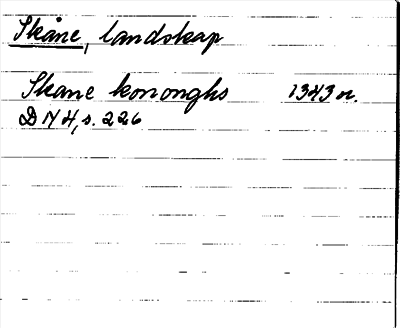 Skåne, landskap
Skane kononghs 1343 n.
D N 4, s. 226